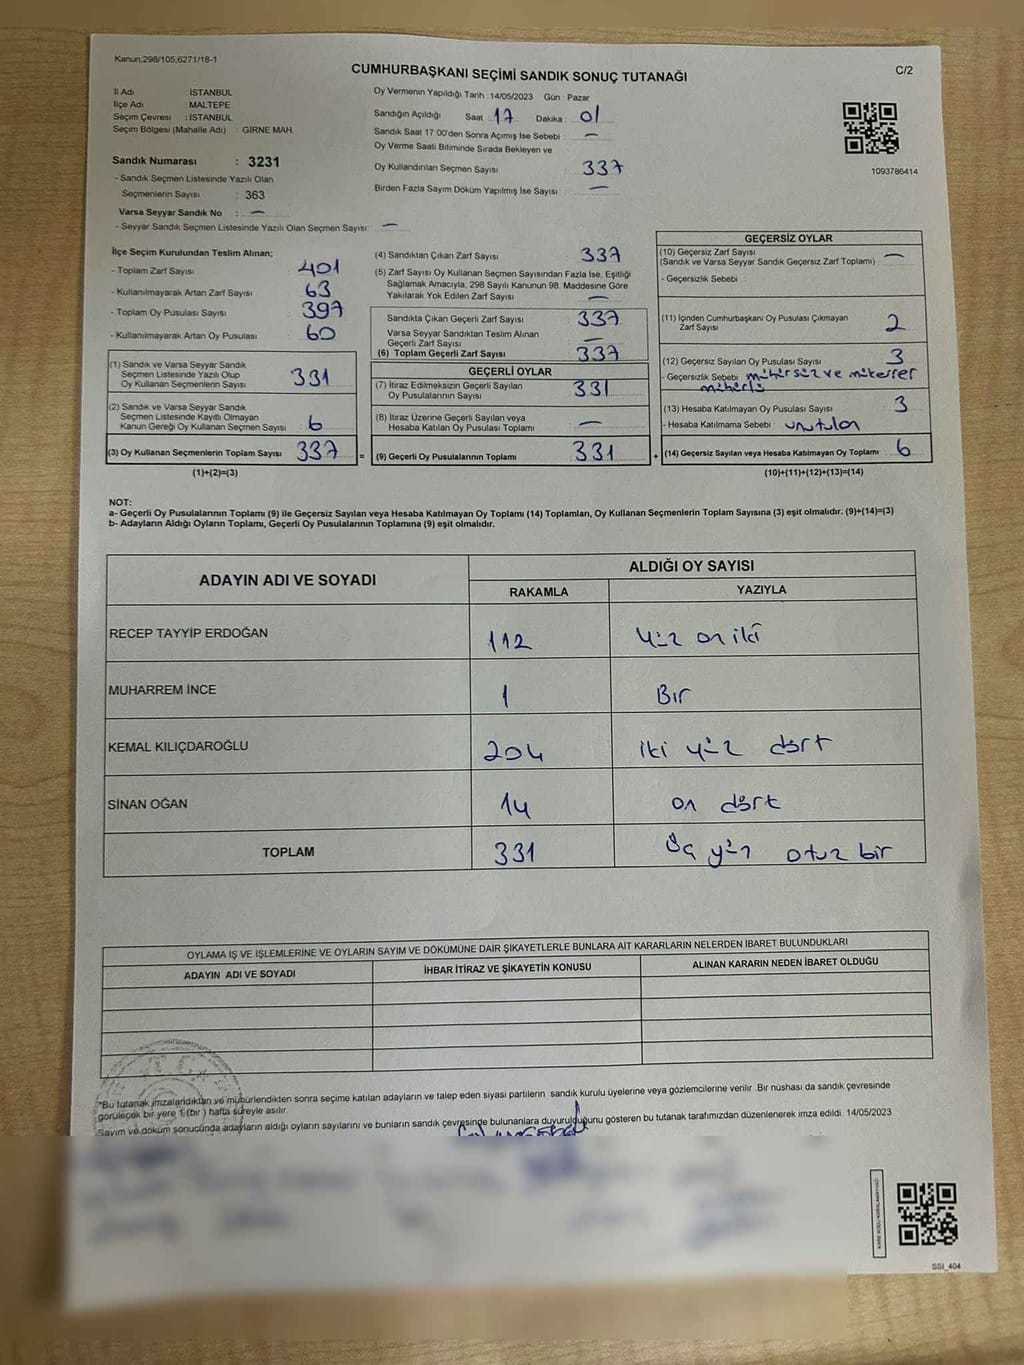 Kanun;298/105,6271/18-1
CUMHURBAŞKANI SEÇİMİ SANDIK SONUÇ TUTANAĞI
C/2
İl Adı : İSTANBUL
İlçe Adı MALTEPE
Seçim Çevresi : İSTANBUL
Seçim Bölgesi (Mahalle Adı) : GİRNE MAH.
Sandık Numarası : 3231
- Sandık Seçmen Listesinde Yazılı Olan
Seçmenlerin Sayısı : 363
Varsa Seyyar Sandık No : —
- Seyyar Sandık Seçmen Listesinde Yazılı Olan Seçmen Sayısı: —
Oy Vermenin Yapıldığı Tarih :14/05/2023 Gün : Pazar
Sandığın Açıldığı Saat 17 Dakika 01
Sandık Saat 17:00'den Sonra Açımış İse Sebebi —
Oy Verme Saati Bitiminde Sırada Bekleyen ve
Oy Kullandırılan Seçmen Sayısı 337
Birden Fazla Sayım Döküm Yapılmış İse Sayısı —
1093786414
İlçe Seçim Kurulundan Teslim Alınan;
- Toplam Zarf Sayısı 401
- Kullanılmayarak Artan Zarf Sayısı 63
- Toplam Oy Pusulası Sayısı 397
- Kullanılmayarak Artan Oy Pusulası 60
(1) Sandık ve Varsa Seyyar Sandık
Seçmen Listesinde Yazılı Olup
Oy Kullanan Seçmenlerin Sayısı 331
(2) Sandık ve Varsa Seyyar Sandık
Seçmen Listesinde Kayıtlı Olmayan
Kanun Gereği Oy Kullanan Seçmen Sayısı 6
(3) Oy Kullanan Seçmenlerin Toplam Sayısı 337
(1)+(2)=(3)
(4) Sandıktan Çıkan Zarf Sayısı 337
(5) Zarf Sayısı Oy Kullanan Seçmen Sayısından Fazla İse, Eşitliği
Sağlamak Amacıyla, 298 Sayılı Kanunun 98. Maddesine Göre
Yakılarak Yok Edilen Zarf Sayısı —
Sandıkta Çıkan Geçerli Zarf Sayısı 337
Varsa Seyyar Sandıktan Teslim Alınan
Geçerli Zarf Sayısı —
(6) Toplam Geçerli Zarf Sayısı 337
GEÇERLİ OYLAR
(7) İtiraz Edilmeksizin Geçerli Sayılan
Oy Pusulalarının Sayısı 331
(8) İtiraz Üzerine Geçerli Sayılan veya
Hesaba Katılan Oy Pusulası Toplamı —
= (9) Geçerli Oy Pusulalarının Toplamı 331 +
GEÇERSİZ OYLAR
(10) Geçersiz Zarf Sayısı
(Sandık ve Varsa Seyyar Sandık Geçersiz Zarf Toplamı) —
- Geçersizlik Sebebi
(11) İçinden Cumhurbaşkanı Oy Pusulası Çıkmayan
Zarf Sayısı 2
(12) Geçersiz Sayılan Oy Pusulası Sayısı 3
- Geçersizlik Sebebi mühürsüz ve mükerrer
mühürlü
(13) Hesaba Katılmayan Oy Pusulası Sayısı 3
- Hesaba Katılmama Sebebi: unutulan
(14) Geçersiz Sayılan veya Hesaba Katılmayan Oy Toplamı 6
(10)+(11)+(12)+(13)=(14)
NOT:
a- Geçerli Oy Pusulalarının Toplamı (9) ile Geçersiz Sayılan veya Hesaba Katılmayan Oy Toplamı (14) Toplamları, Oy Kullanan Seçmenlerin Toplam Sayısına (3) eşit olmalıdır. (9)+(14)=(3)
b- Adayların Aldığı Oyların Toplamı, Geçerli Oy Pusulalarının Toplamına (9) eşit olmalıdır.
ADAYIN ADI VE SOYADI
ALDIĞI OY SAYISI
RAKAMLA YAZIYLA
RECEP TAYYİP ERDOĞAN 112 Yüz on iki
MUHARREM İNCE 1 Bir
KEMAL KILIÇDAROĞLU 204 iki yüz dört
SİNAN OĞAN 14 on dört
TOPLAM 331 Üç yüz otuz bir
OYLAMA İŞ VE İŞLEMLERİNE VE OYLARIN SAYIM VE DÖKÜMÜNE DAİR ŞİKAYETLERLE BUNLARA AİT KARARLARIN NELERDEN İBARET BULUNDUKLARI
ADAYIN ADI VE SOYADI İHBAR İTİRAZ VE ŞİKAYETİN KONUSU ALINAN KARARIN NEDEN İBARET OLDUĞU
T.C.
*Bu tutanak imzalandıktan ve mühürlendikten sonra seçime katılan adayların ve talep eden siyasi partilerin sandık kurulu üyelerine veya gözlemcilerine verilir. Bir nüshası da sandık çevresinde
görülecek bir yere 1 (bir ) hafta süreyle asılır.
Sayım ve döküm sonucunda adayların aldığı oyların sayılarını ve bunların sandık çevresinde bulunanlara duyurulduğunu gösteren bu tutanak tarafımızdan düzenlenerek imza edildi. 14/05/2023
SSI_404